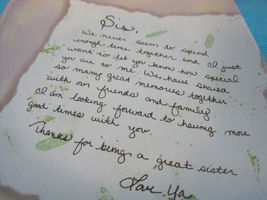 Sis,
We never seem to spend
enough time together and I just
want to let you know how special
you are to me. We have shared
so many great memories together
with our friends and family.
I am looking forward to having more
good times with you.
Thanks for being a great sister
Love Ya